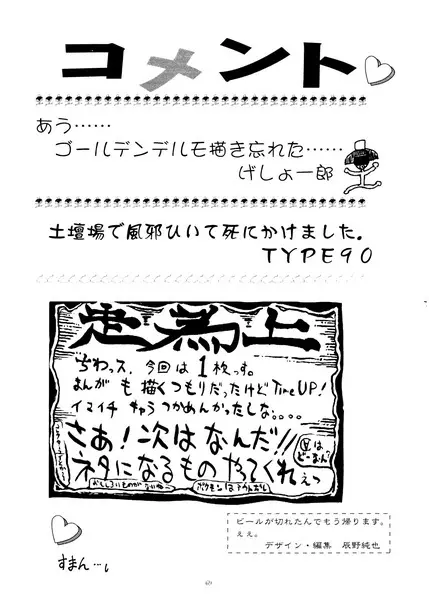 コメント
あう……
ゴールデンデルモ描き忘れた……
げしょ一郎
土壇場で風邪ひいて死にかけました。
TYPE90
走為上
ちわっス、今回は1枚っす。
まんが も 描くつもりだったけど Time UP!
イマイチ キャラ つかめんかったしな。。。。
さあ!次はなんだ!!
ネタになるもの やってくれぇっ
ビールが切れたんでもう帰ります。
ええ。
デザイン・編集 辰野純也
すまん…